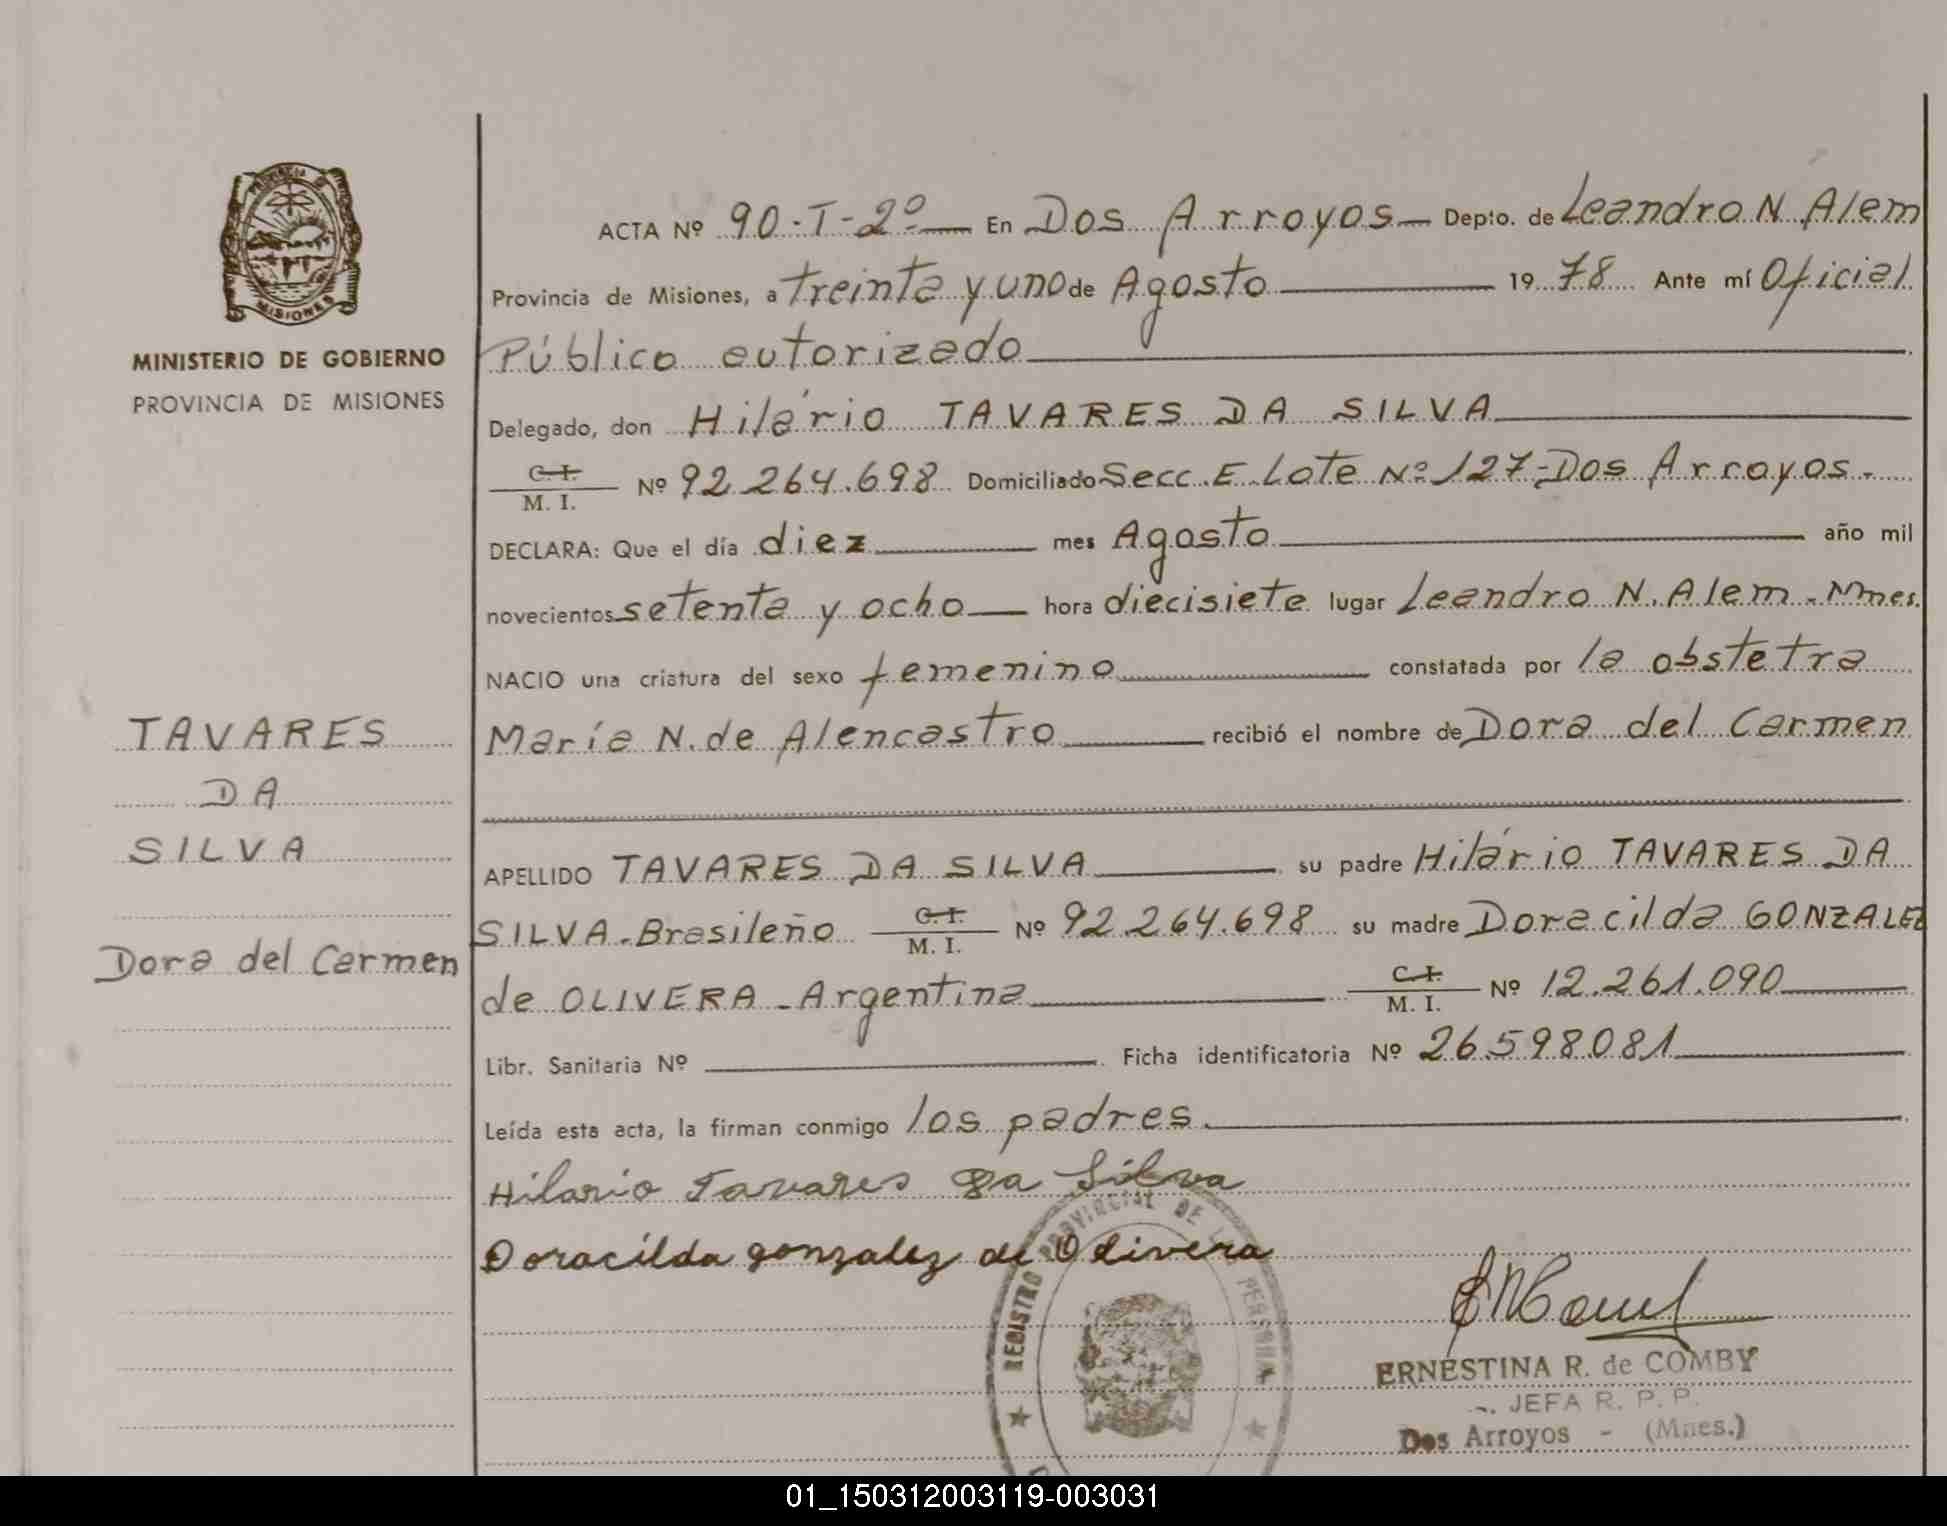 PROVINCIA DE
MISIONES
MINISTERIO DE GOBIERNO
PROVINCIA DE MISIONES
TAVARES
DA
SILVA
Dora del Carmen
ACTA Nº 90-T-2º En Dos Arroyos Depto. de Leandro N. Alem
Provincia de Misiones, a treinta y uno de Agosto 1978 Ante mí Oficial
Público autorizado
Delegado, don Hilário TAVARES DA SILVA
C. I.
M. I. Nº 92.264.698 Domiciliado Secc. E. Lote Nº 127-Dos Arroyos.-
DECLARA: Que el día diez mes Agosto año mil
novecientos setenta y ocho hora diecisiete lugar Leandro N. Alem - Mnes.
NACIO una criatura del sexo femenino constatada por la obstetra
María N. de Alencastro recibió el nombre de Dora del Carmen
APELLIDO TAVARES DA SILVA su padre Hilário TAVARES DA
SILVA-Brasileño C. I. M. I. Nº 92.264.698 su madre Doracilda GONZALEZ
de OLIVERA - Argentina C. I. M. I. Nº 12.261.090
Libr. Sanitaria Nº Ficha identificatoria Nº 26598081
Leída esta acta, la firman conmigo los padres.
Hilario Tavares Da Silva
Doracilda gonzalez de Olivera
REGISTRO PROVINCIAL DE
ERNESTINA R. de COMBY
JEFA R. P. P.
Dos Arroyos - (Mnes.)
01_150312003119-003031